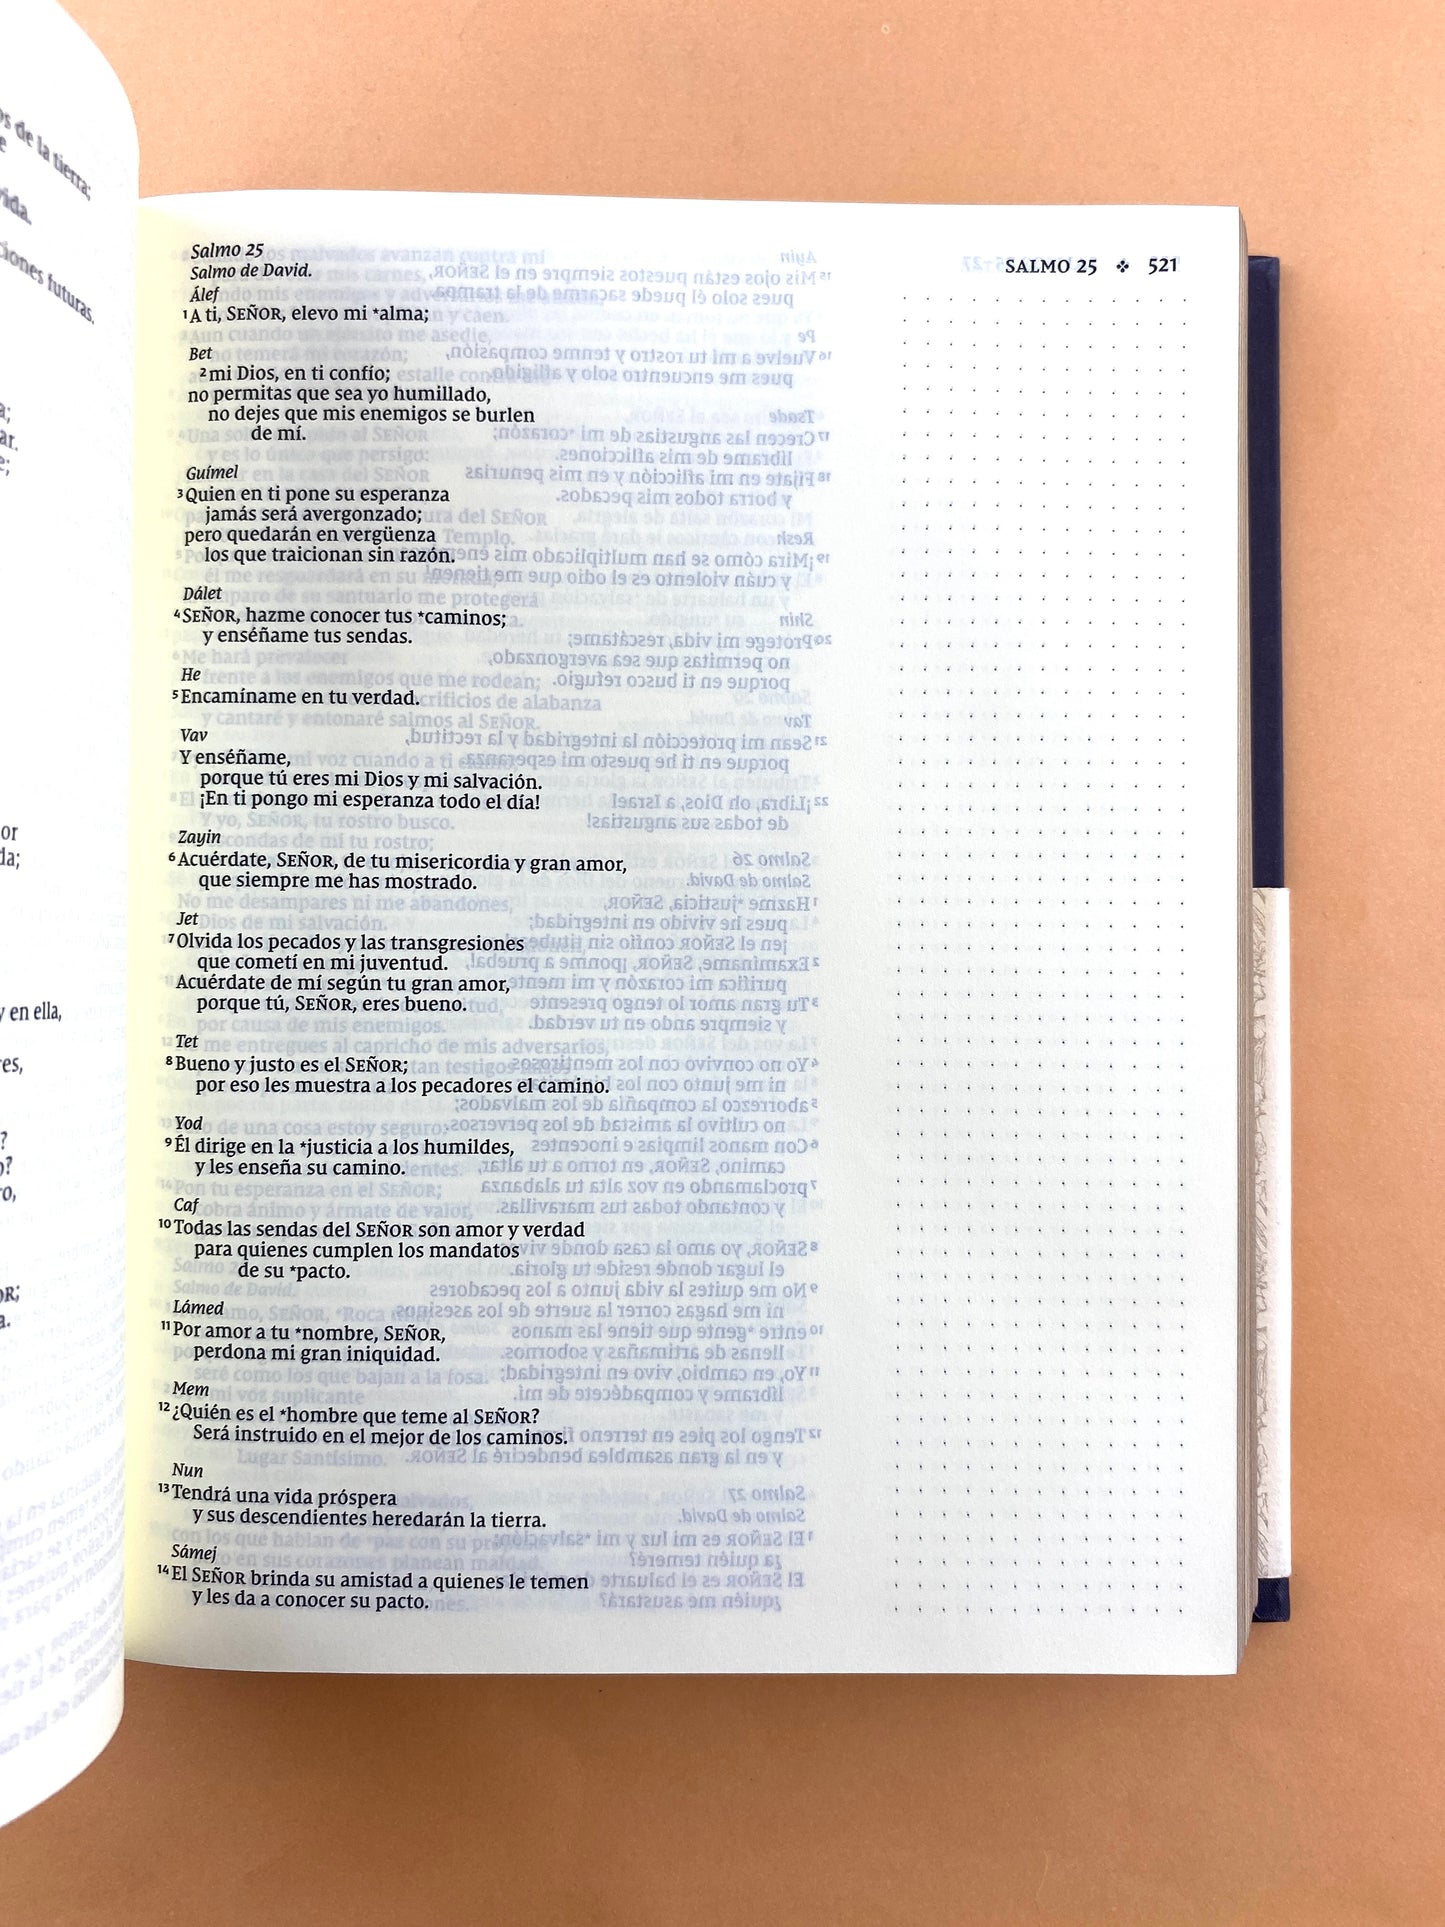 os de la tierra;
e
vida.
ciones futuras.
a;
ar.
e;
or
da;
y en ella,
res,
?
o?
ro,
OR;
a.
SALMO 25 ❖ 521
Salmo 25
Salmo de David.
Álef
1 A ti, SEÑOR, elevo mi *alma;
Bet
2 mi Dios, en ti confío;
no permitas que sea yo humillado,
no dejes que mis enemigos se burlen
de mí.
Guímel
3 Quien en ti pone su esperanza
jamás será avergonzado;
pero quedarán en vergüenza
los que traicionan sin razón.
Dálet
4 SEÑOR, hazme conocer tus *caminos;
y enséñame tus sendas.
He
5 Encamíname en tu verdad.
Vav
Y enséñame,
porque tú eres mi Dios y mi salvación.
¡En ti pongo mi esperanza todo el día!
Zayin
6 Acuérdate, SEÑOR, de tu misericordia y gran amor,
que siempre me has mostrado.
Jet
7 Olvida los pecados y las transgresiones
que cometí en mi juventud.
Acuérdate de mí según tu gran amor,
porque tú, SEÑOR, eres bueno.
Tet
8 Bueno y justo es el SEÑOR;
por eso les muestra a los pecadores el camino.
Yod
9 Él dirige en la *justicia a los humildes,
y les enseña su camino.
Caf
10 Todas las sendas del SEÑOR son amor y verdad
para quienes cumplen los mandatos
de su *pacto.
Lámed
11 Por amor a tu *nombre, SEÑOR,
perdona mi gran iniquidad.
Mem
12 ¿Quién es el *hombre que teme al SEÑOR?
Será instruido en el mejor de los caminos.
Nun
13 Tendrá una vida próspera
y sus descendientes heredarán la tierra.
Sámej
14 El SEÑOR brinda su amistad a quienes le temen
y les da a conocer su pacto.